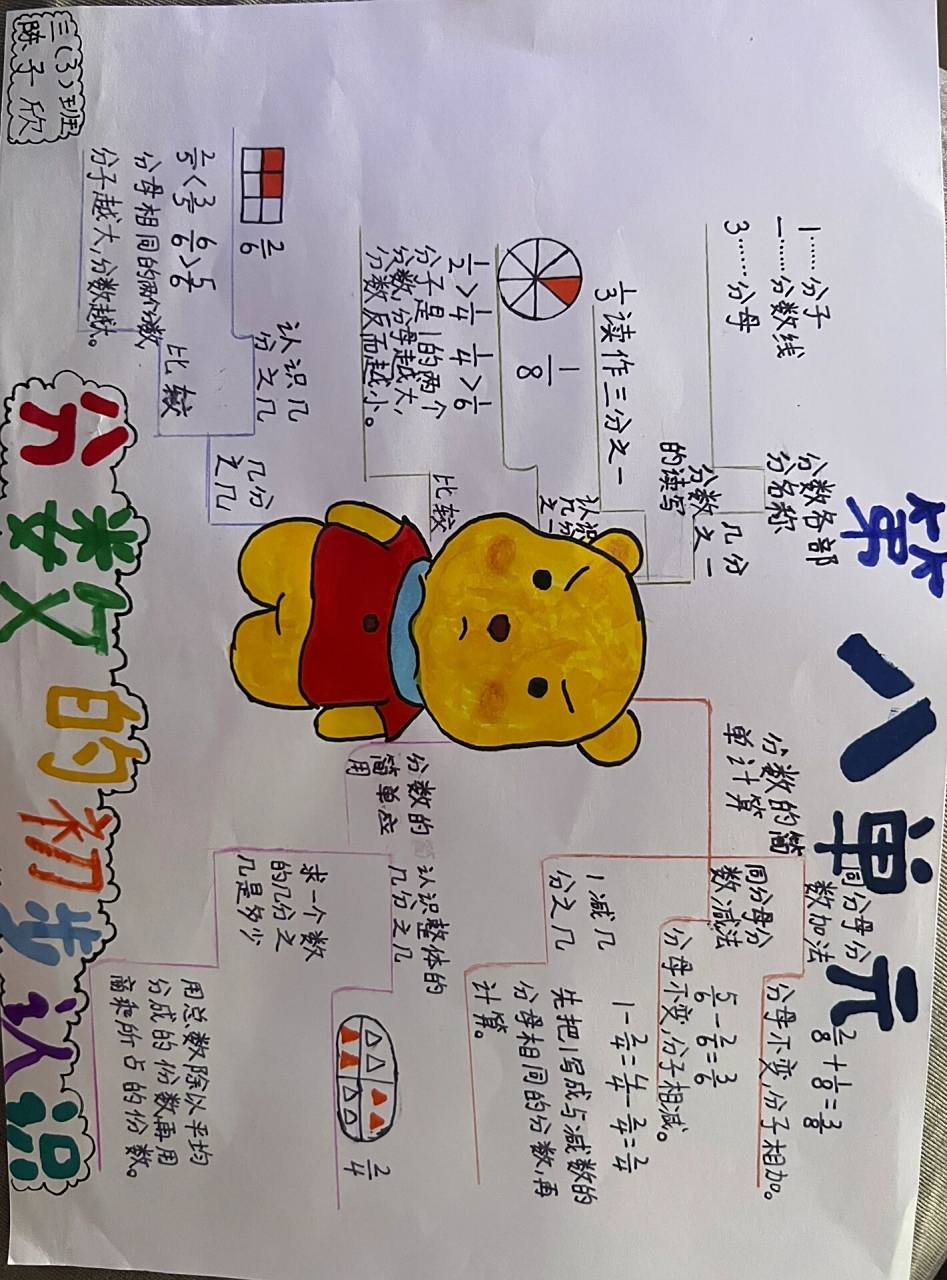 第八单元
分数的初步认识
三(3)班
陈子欣
几分
之一
分数各部
分名称
1……分子
一……分数线
3……分母
分数
的读写
1/3读作三分之一
认识
几分
之一
1/8
比较
1/2>1/4 1/4>1/6
分子是1的两个
分数,分母越大,
分数反而越小。
几分
之几
认识几
分之几
2/6
比较
2/5<3/5 6/6>5/6
分母相同的两个分数,
分子越大,分数越大。
分数的简
单计算
同分母分
数加法
2/8+1/8=3/8
分母不变,分子相加。
同分母分
数减法
5/6-2/6=3/6
分母不变,分子相减。
1减几
分之几
1-2/4=4/4-2/4=2/4
先把1写成与减数的
分母相同的分数,再
计算。
分数的
简单应
用
认识整体的
几分之几
2/4
求一个数
的几分之
几是多少
用总数除以平均
分成的份数,再用
商乘所占的份数。